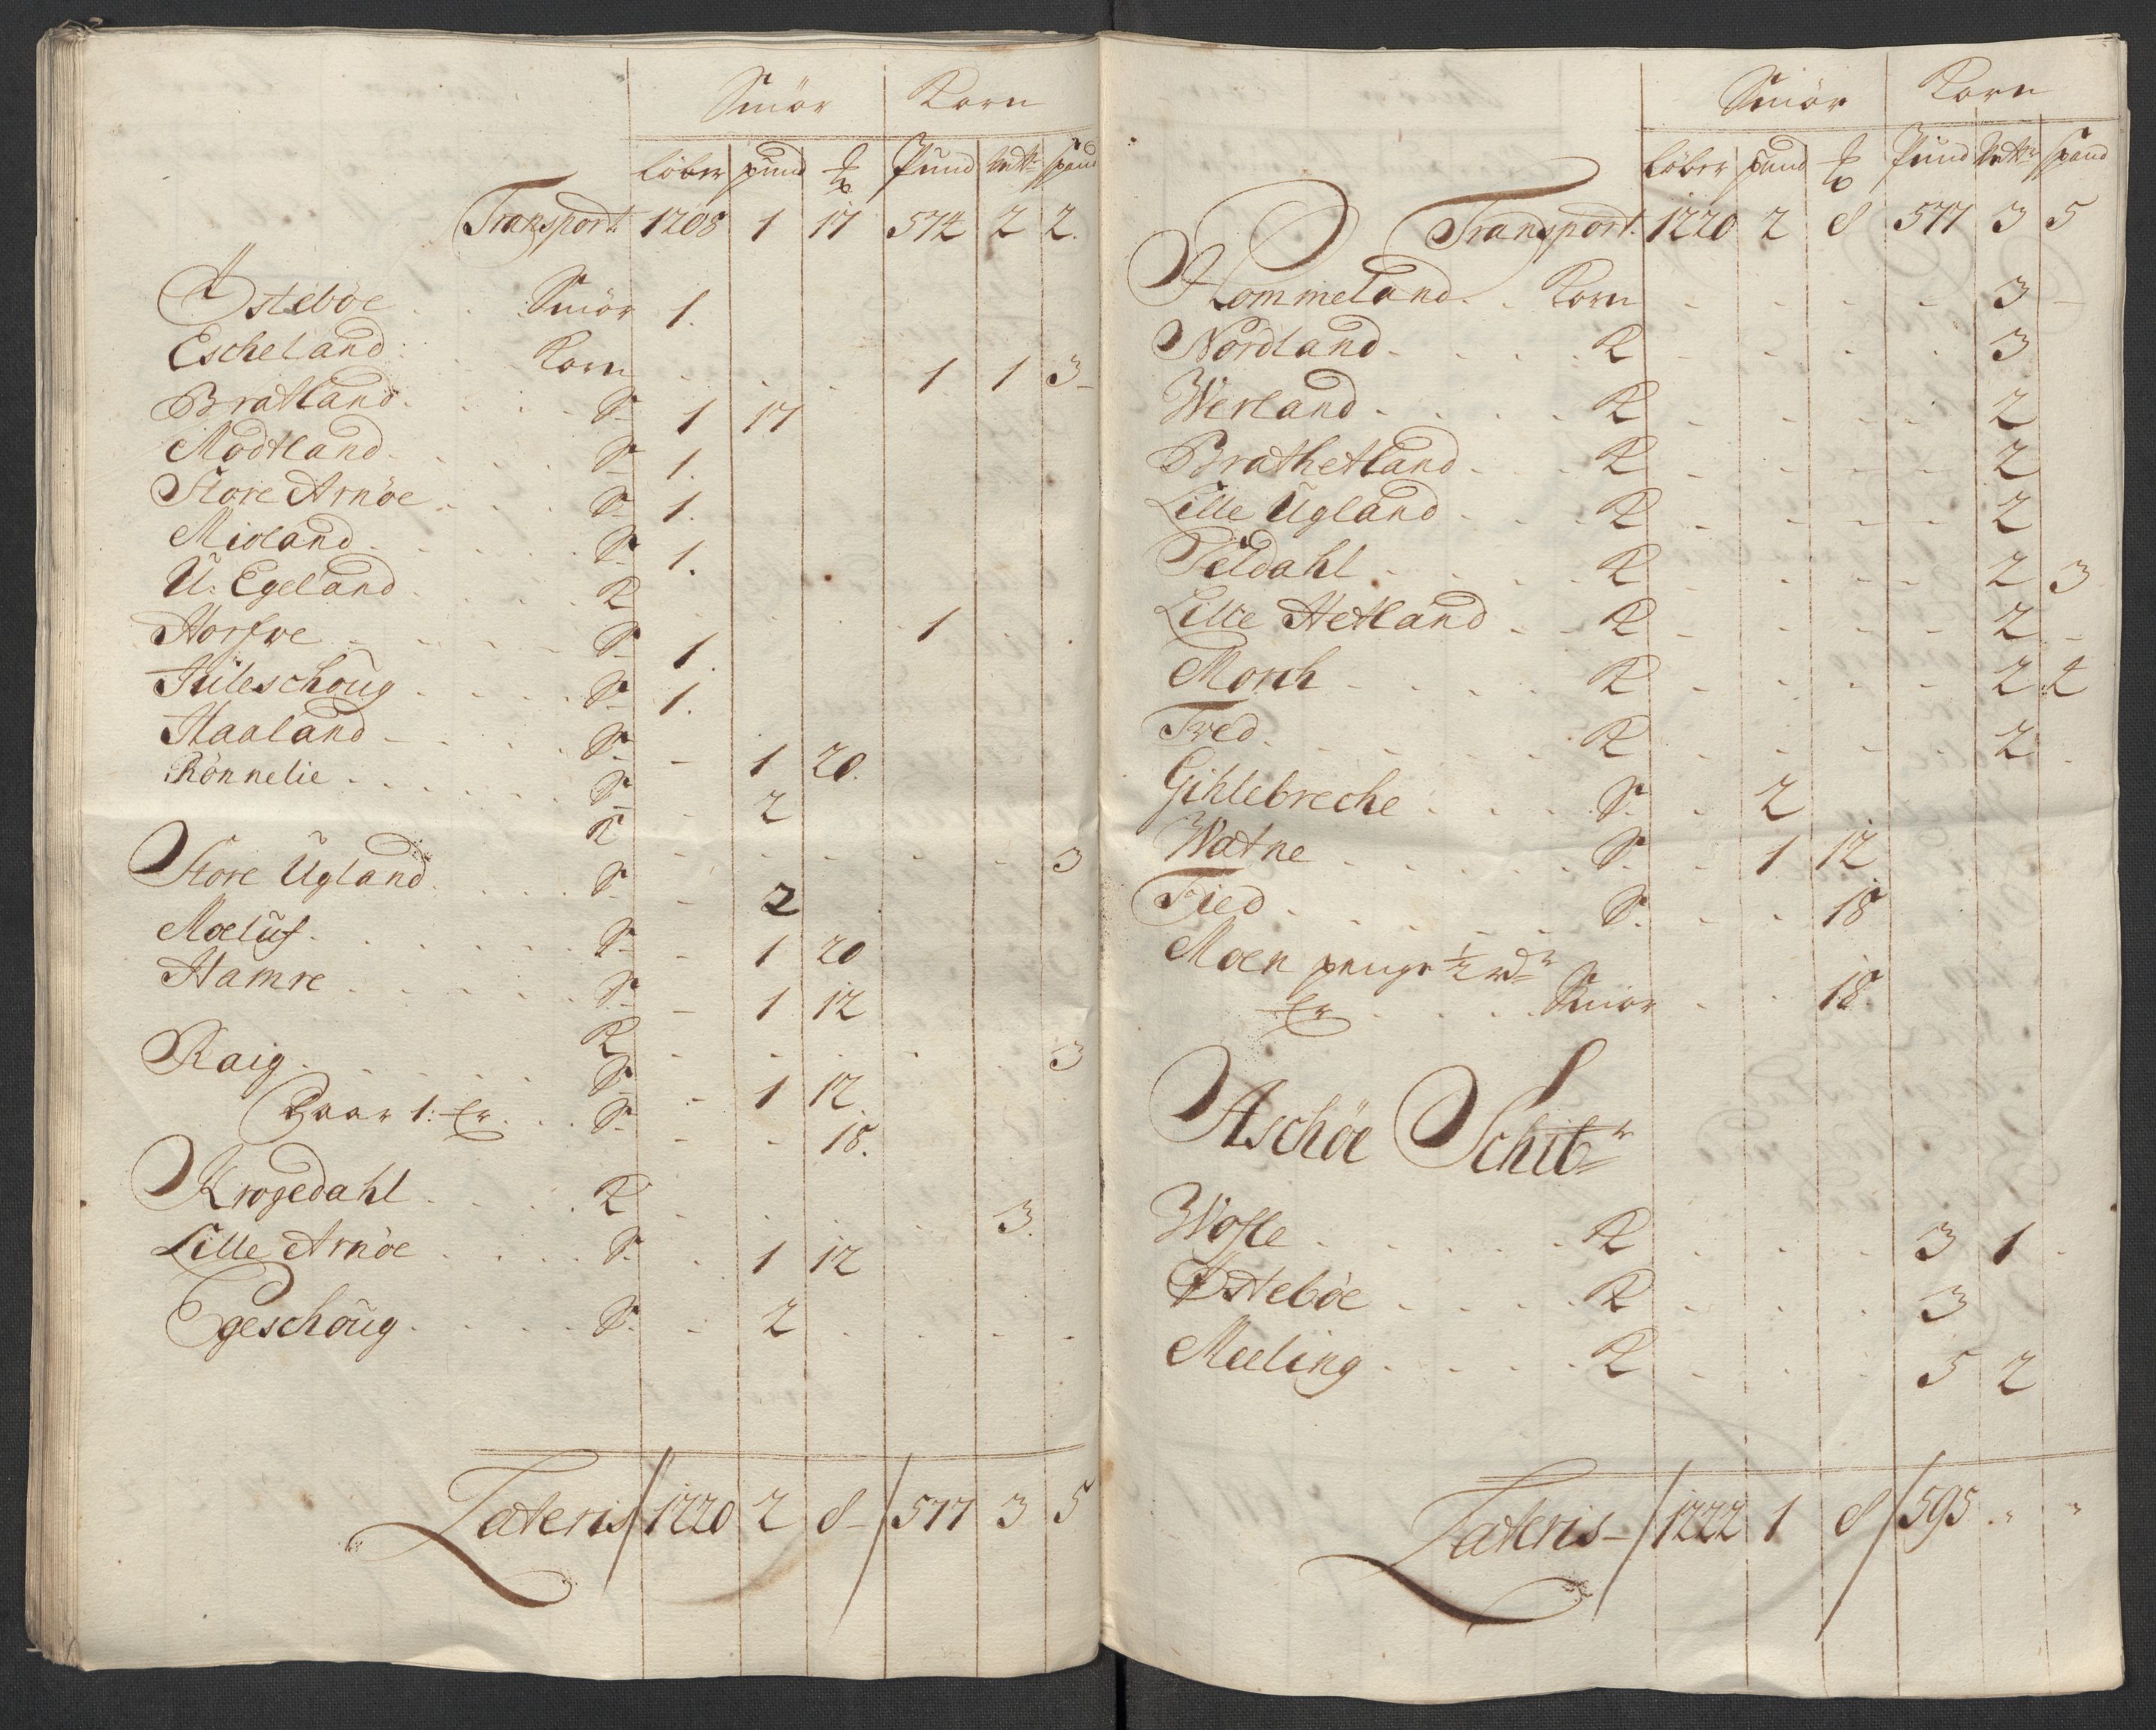 Smör Korn
Löber pund ℔ Pund Wett spand
Transport 1208 1 17 574 2 2.
Østeböe . . Smör 1.
Escheland . . Korn . . . 1 1 3
Bratland . . . S. 1 17
Modtland . . . S. 1.
Store Arnöe . . . S. 1.
Midland . . . S. 1.
U: Egeland . . . K . . . 1
Horsve . . . S. 1.
Juleschoug . . . S. 1.
Haaland . . . S. - 1 20.
Rönnelie . . . S. - 2
K . . . . . 3
Store Ugland . . . S. - 2
Moeluf . . . S. - 1 20
Hamre . . . S. - 1 12
K . . . . . 3
Raig . . . S. - 1 12
Gaar 1: Er . . S. - - 18.
Krogedahl . . . K . . . . 3.
Lille Arnöe . . . S. . 1 12
Egeschoug . . . S. . 2 . . . .
Lateris 1220 2 8 577 3 5
Smör Korn
Löber pund ℔ Pund Wett spand
Transport. 1220 2 8 577 3 5
Hommeland . . Korn . . . . 3 -
Nordland . . . K . . . . 3
Werland . . . K . . . . 2
Brathetland . . . K . . . . 2
Lille Ugland . . . K . . . . 2
Tildahl . . . K . . . . 2 3
Lille Hetland . . K . . . . 2 -
Monh . . . K . . . . 2 2
Tved . . . K . . . . 2
Gihlebreche . . . S. . 2
Watne . . . S. . 1 12
Tied . . . S. . . 18
Moen penge ½ rdr
Er . . . Smör . . 18.
Aschöe Schibr
Wosle . . . K . . . 3 1 .
Østeböe . . . K . . . 3
Meeling . . . K . . . 5 2
Lateris 1222 1 8 595 " "